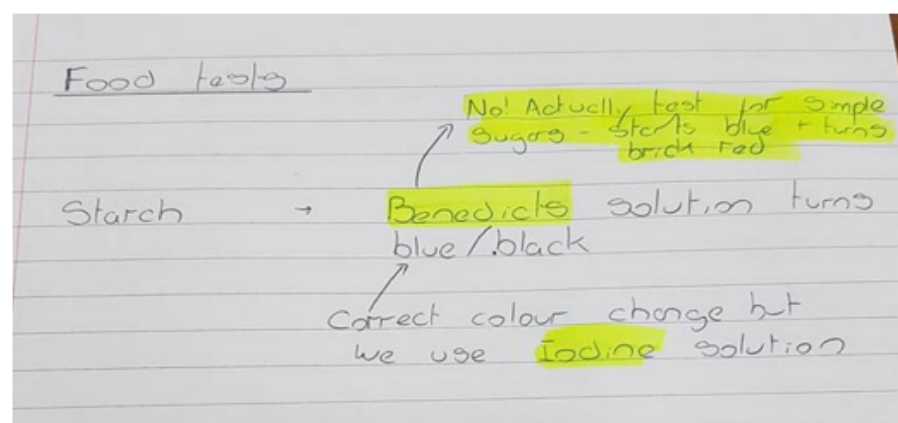 Food tests
No! Actually test for simple
sugars - starts blue + turns
brick red
Starch → Benedicts solution turns
blue/black
Correct colour change but
we use Iodine solution